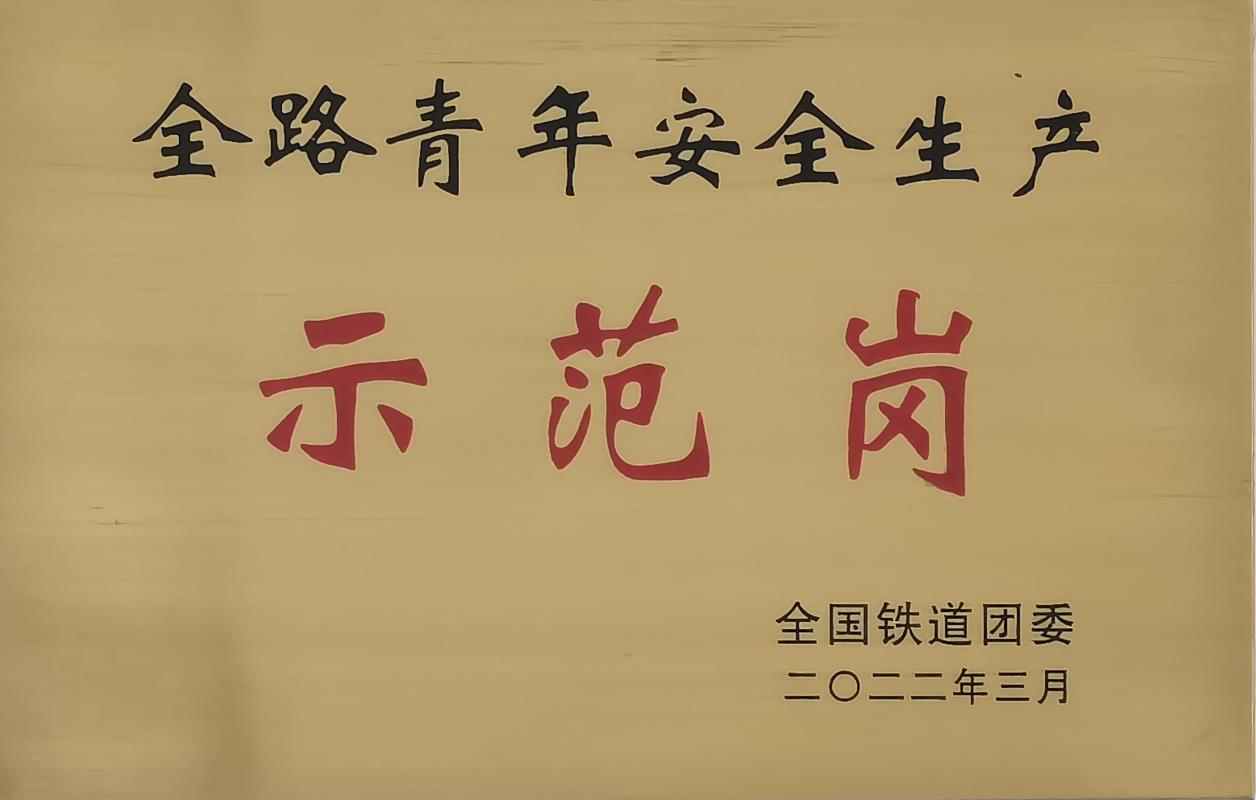 全路青年安全生产
示范岗
全国铁道团委
二〇二二年三月